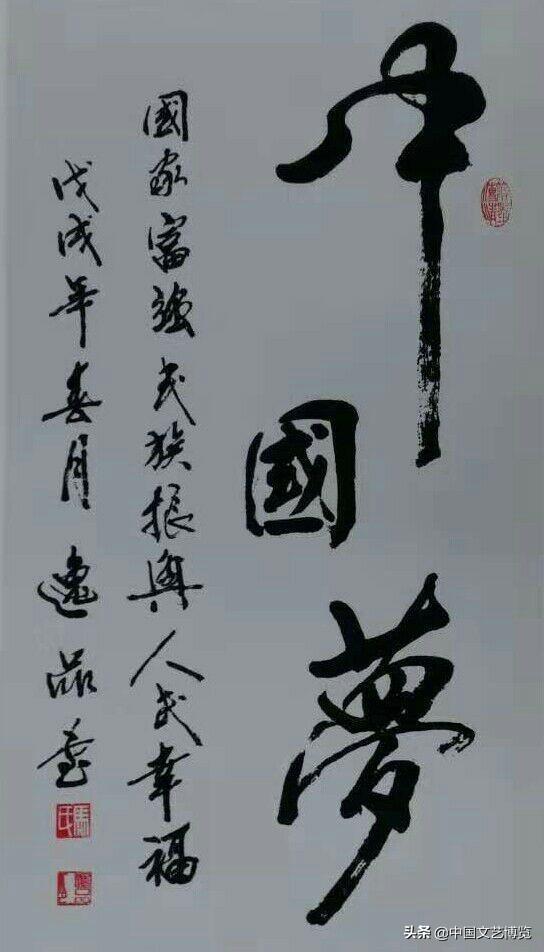 中國夢
國家富強民族振興人民幸福
戊戌年春月逸品
馬氏
头条 @中国文艺博览